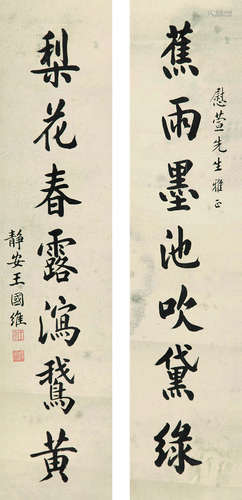 蕉雨墨池吹黛綠
慰萱先生雅正
梨花春露瀉鵝黃
靜安王國維